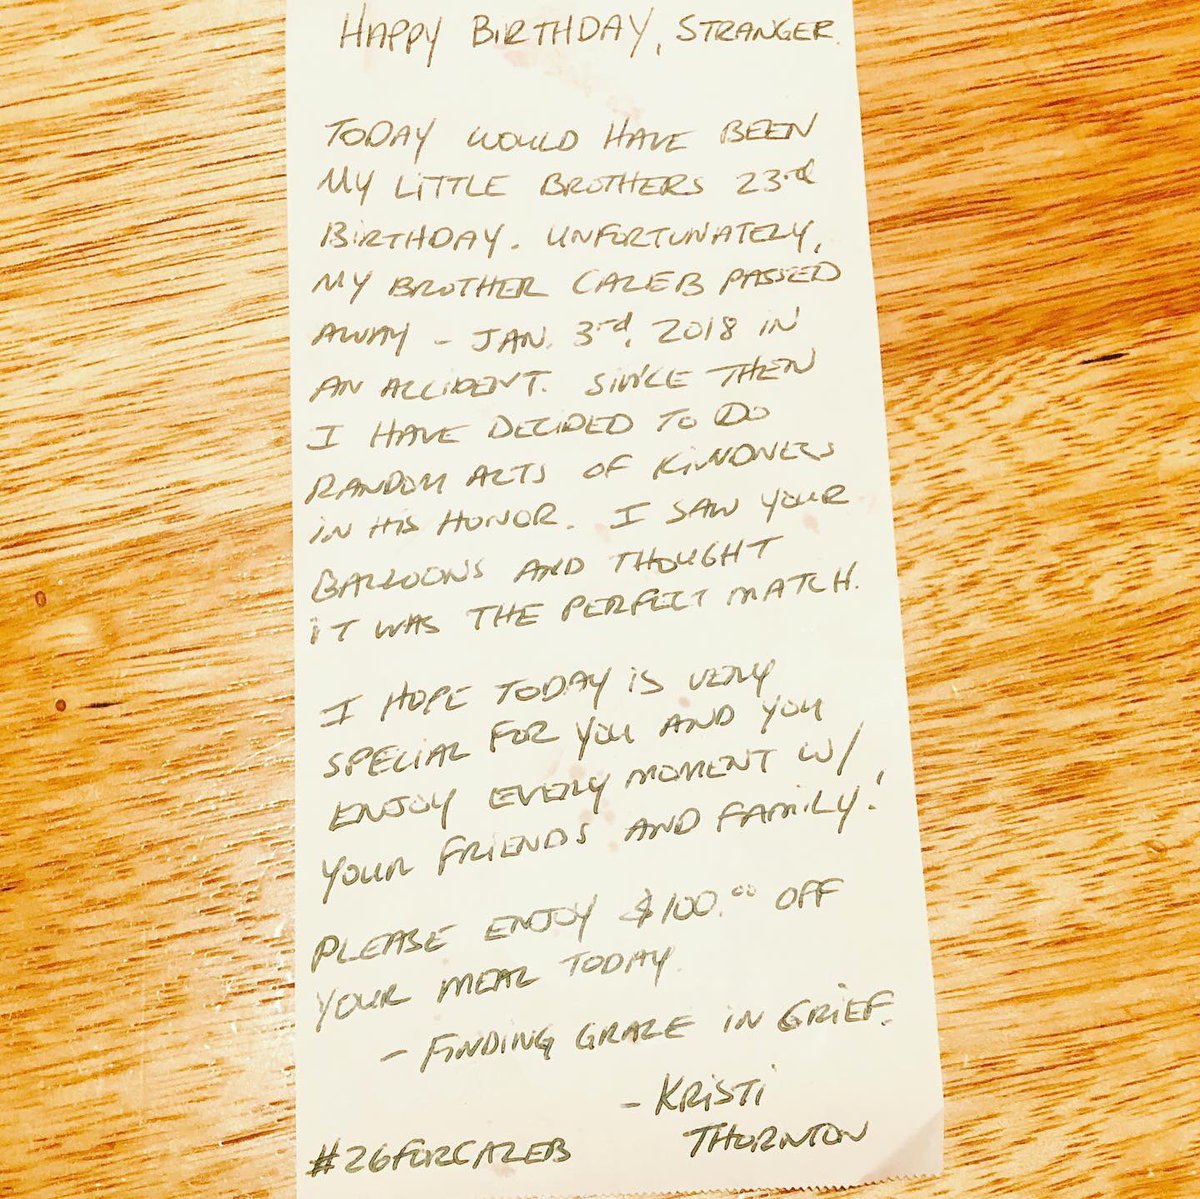 HAPPY BIRTHDAY, STRANGER.
TODAY WOULD HAVE BEEN
MY LITTLE BROTHERS 23rd
BIRTHDAY. UNFORTUNATELY,
MY BROTHER CALEB PASSED
AWAY - JAN. 3rd, 2018 IN
AN ACCIDENT. SINCE THEN
I HAVE DECIDED TO DO
RANDOM ACTS OF KINDNESS
IN HIS HONOR. I SAW YOUR
BALLOONS AND THOUGHT
IT WAS THE PERFECT MATCH.
I HOPE TODAY IS VERY
SPECIAL FOR YOU AND YOU
ENJOY EVERY MOMENT W/
YOUR FRIENDS AND FAMILY!
PLEASE ENJOY $100.00 OFF
YOUR MEAL TODAY.
- FINDING GRACE IN GRIEF.
- KRISTI
THORNTON
#26FORCALEB